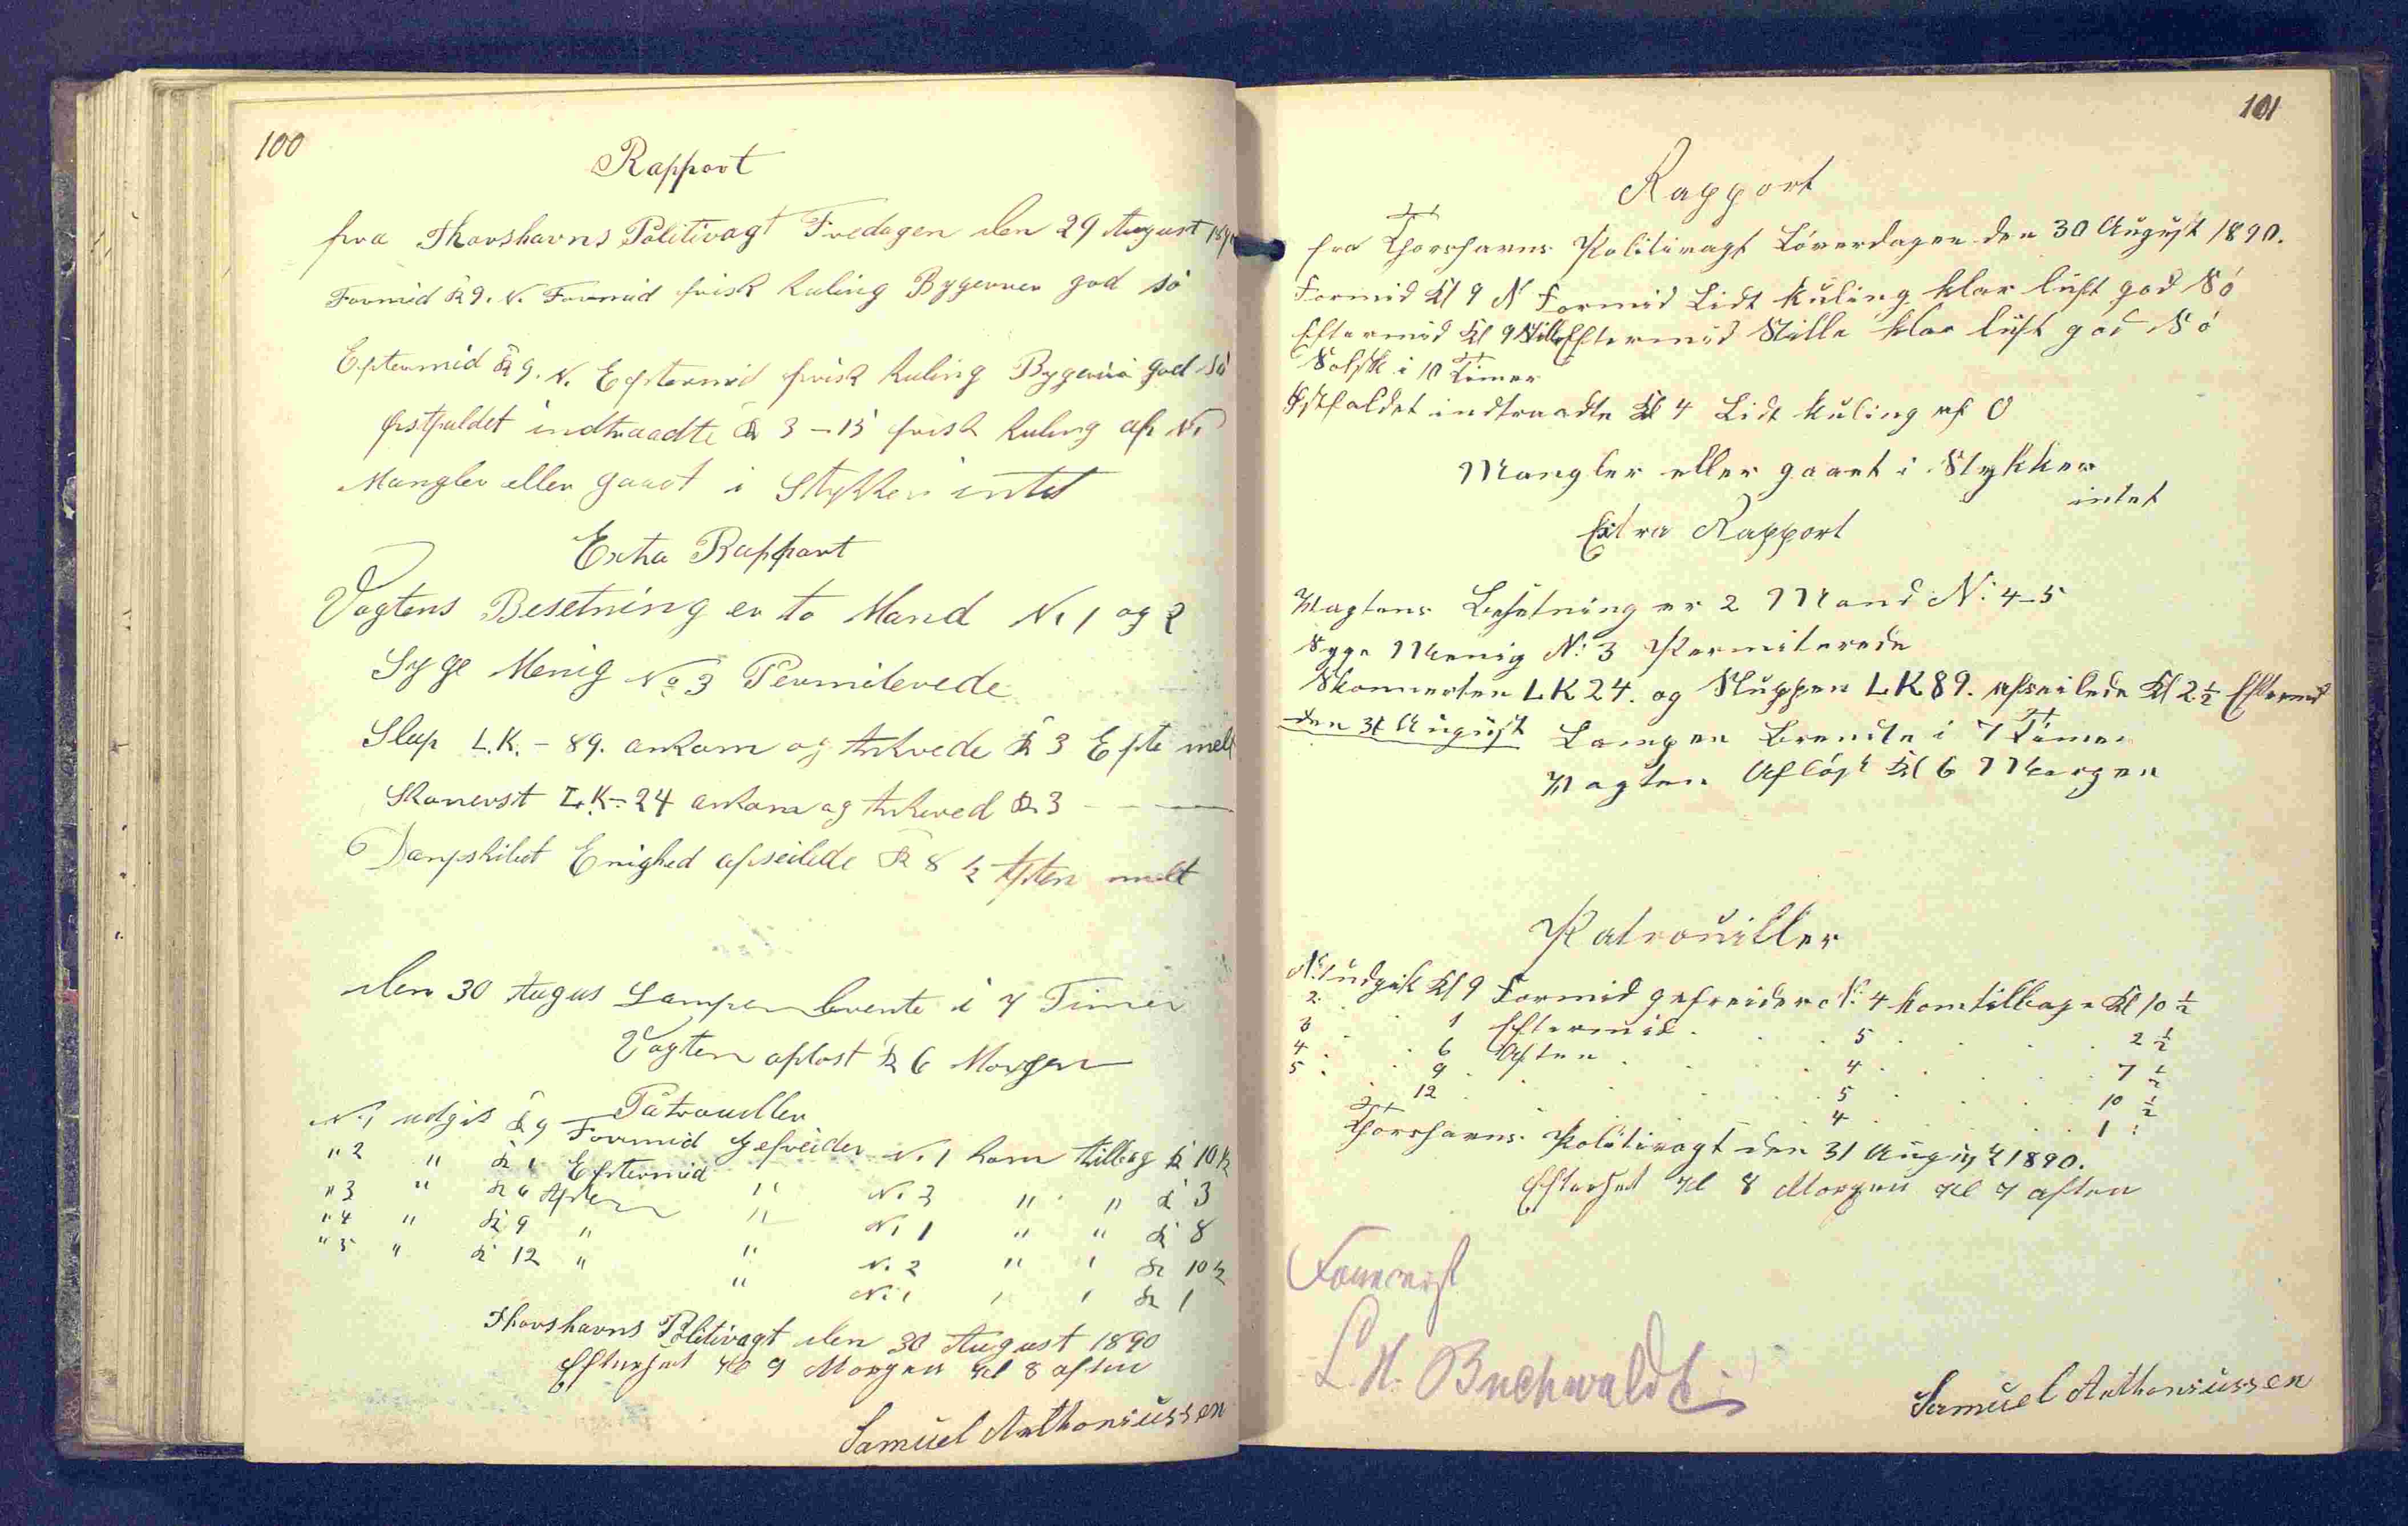 100
Rapport
fra Thorshavns Politivagt Fredagen den 29 August 1890
Formid Kl 9. N. Formid frisk Kuling Bygerver god sö
Eftermid Kl 9. N. Eftermid frisk Kuling god sö
Østfaldet indtraadte Kl 3-15 frisk Kuling af N.
Mangler eller gaaet i Stykker intet
Extra Rapport
Vagtens Besetning er to Mand No 1 og 2
Syge Menig No 3 Permiterede
Slup L.K. - 89. ankom og Ankrede Kl 3 Efte melt
Skonerst L.K. - 24 ankom og Ankred Kl 3 - - —
Dampskibet Enighed afseilede Kl 8 ½ Aften melt
den 30 Augus Lampen brente i 7 Timer
Vagten aflöst Kl 6 Morgen
Patrouiller
No 1 udgik Kl 9 Formid Gefreider No 1 kom tilbag Kl 10½
" 2 " Kl 1 Eftermid " No 3 " " Kl 3
" 3 " Kl 6 Aften " No 1 " " Kl 8
" 4 " Kl 9 " " No 2 " " Kl 10½
" 5 " Kl 12 " " No 1 " " Kl 1
Thorshavns Politivagt den 30 August 1890
Efterset Kl 9 Morgen Kl 8 aften
Samuel Anthoniussen
101
Rapport
fra Thorshavns Politivagt Löverdagen den 30 August 1890.
Formid Kl 9 N Formid Lidt Kuling klar luft god Sö
Eftermid Kl 9 Stille Eftermid Stille klar luft god Sö
Solsk i 10 Timer
Østfaldet indtraadte Kl 4 Lidt Kuling af O
Mangler eller gaaet i Stykker
intet
Extra Rapport
Vagtens Besetning er 2 Mand No 4-5
Syge Menig No 3 Permiterede
Skonnerten LK 24. og Sluppen LK 89. afseilede Kl 2½ Eftermid
den 31 August Lampen Brendte i 7 Timer
Vagten Aflöst Kl 6 Morgen
Patrouiller
No 1 udgik Kl 9 Formid gefreider No 4 kom tilbage Kl 10 ½
2 . . 1 Eftermid . . 5 . . 2 ½
3 . . 6 Aften . . 4 . . 7 ½
4 . . 9 . . . 5 . . 10 ½
5 . . 12 . . . 4 . . 1 .
Thorshavns Politivagt den 31 August 1890.
Efterset Kl 8 Morgen Kl 7 aften
Forevist
L. H. Buchwaldt
Samuel Anthoniussen